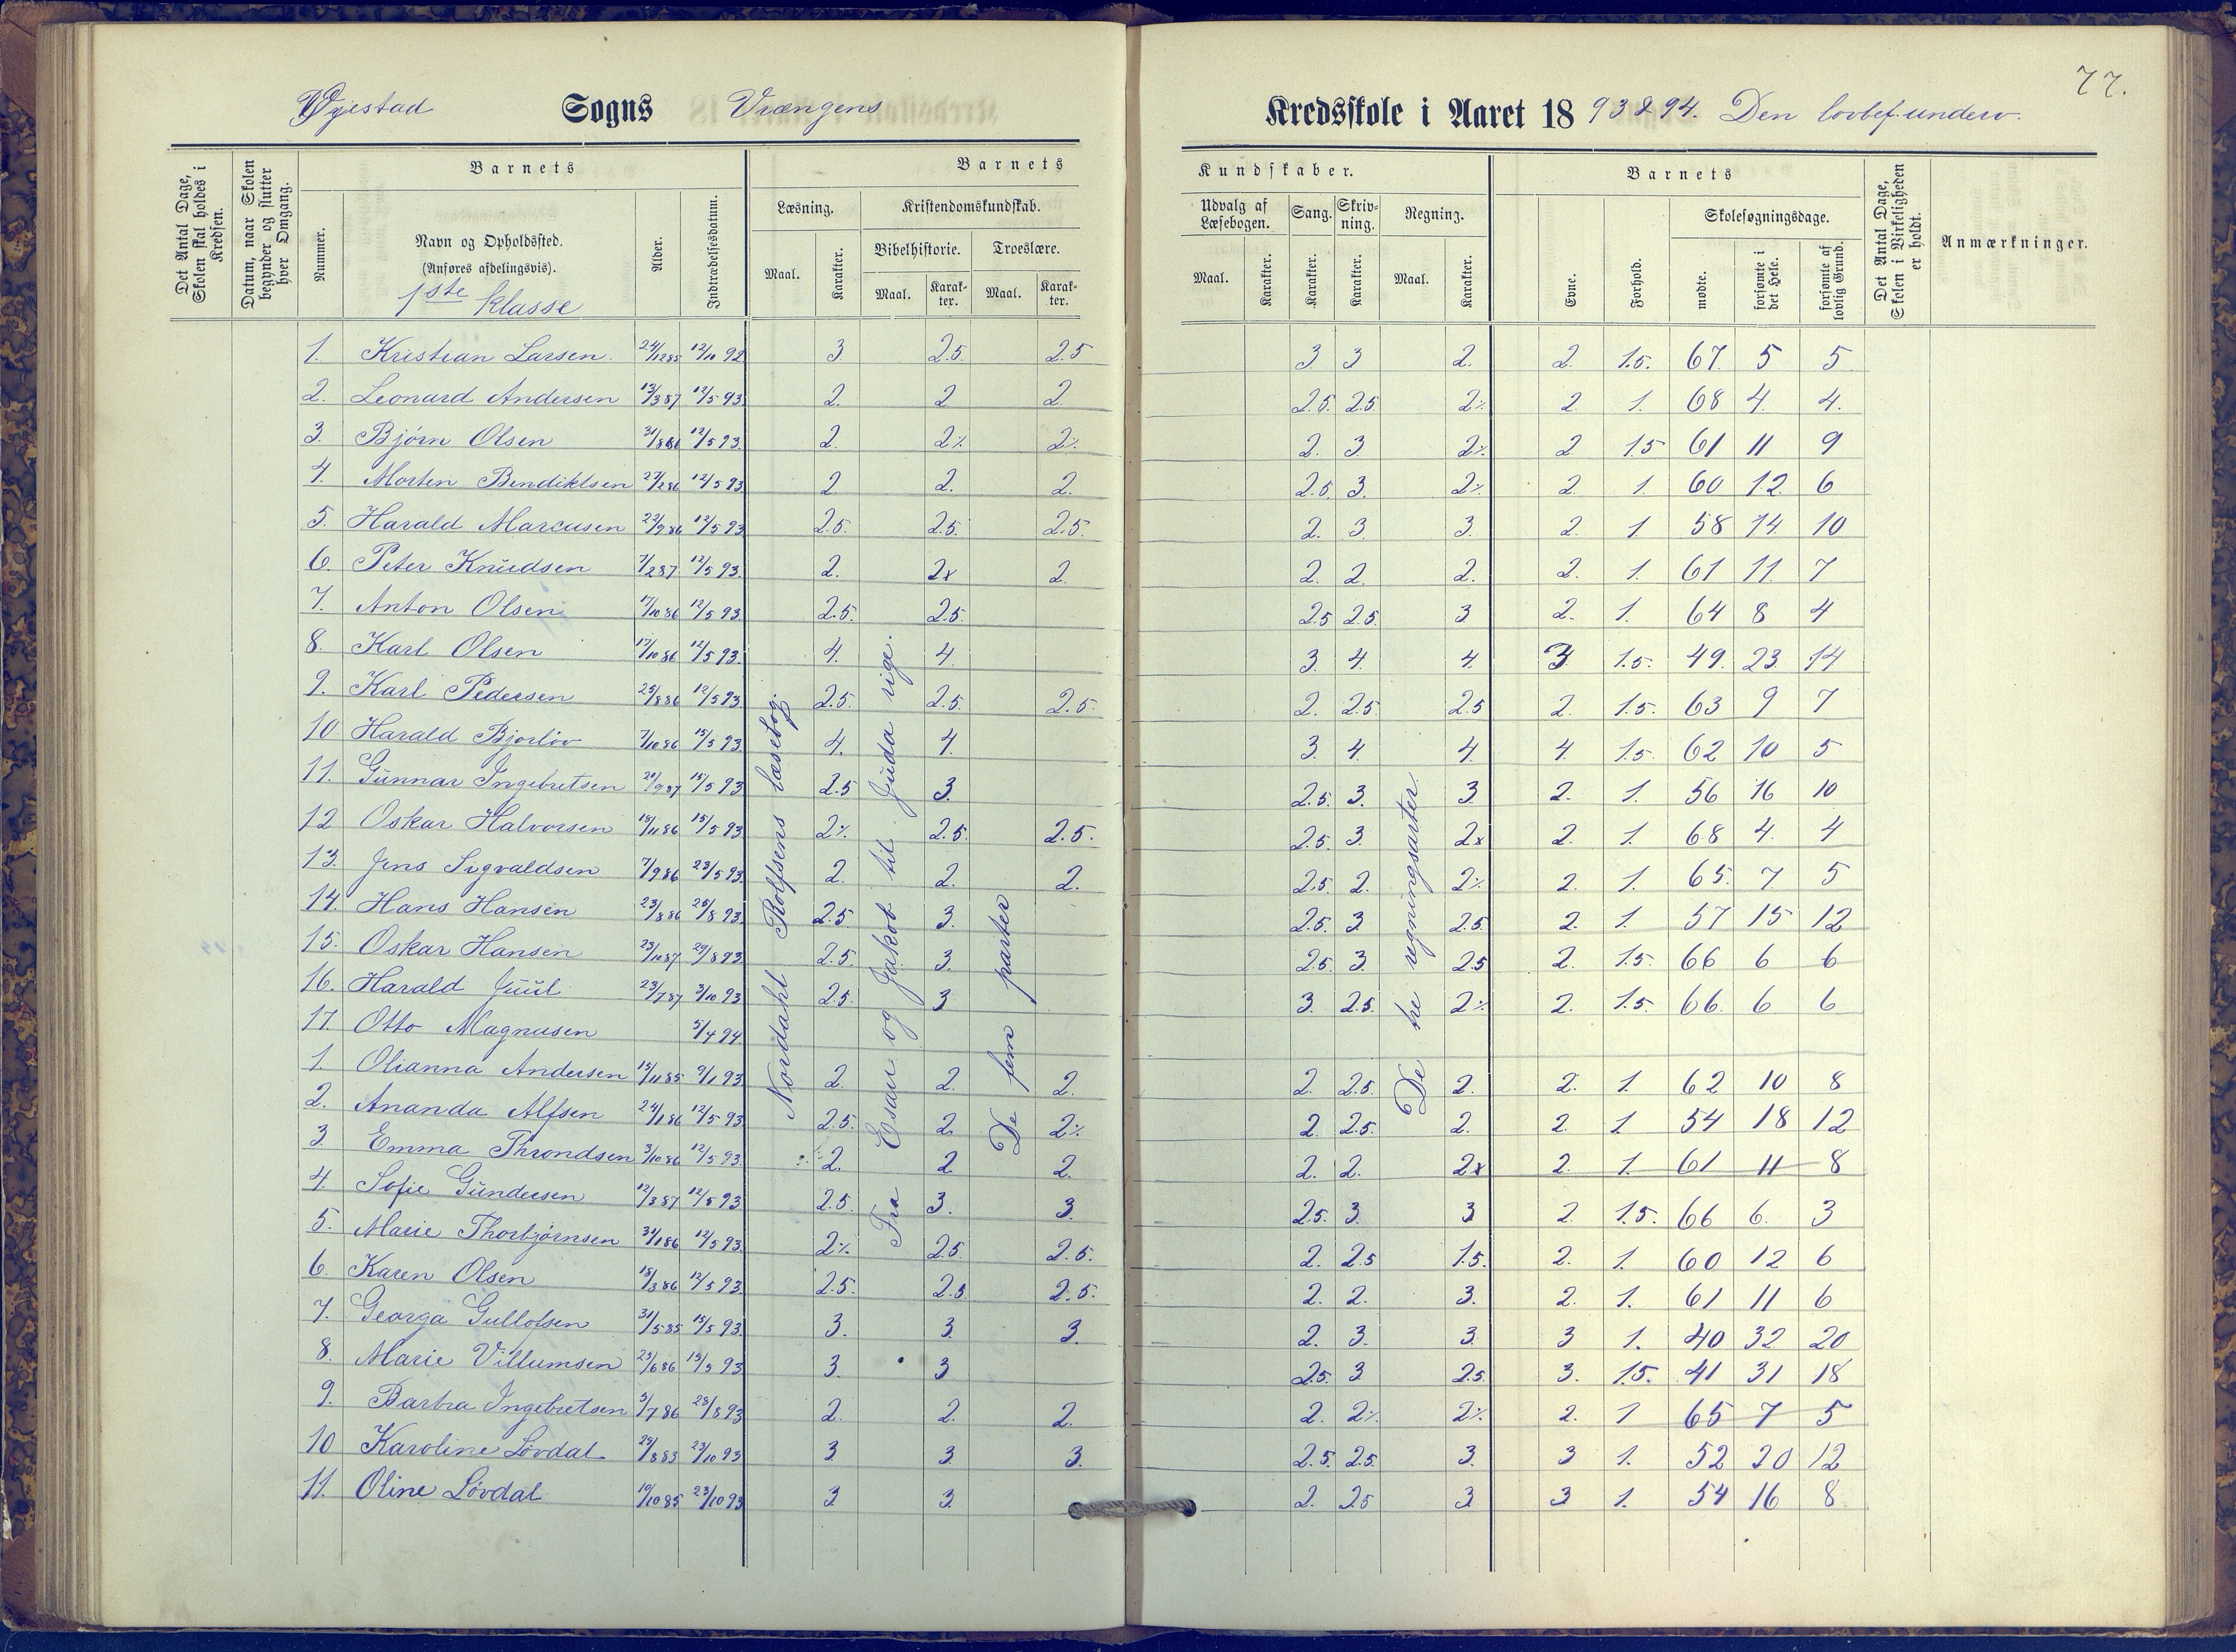 77.
Øyestad Sogns Vrængens Kredsskole i Aaret 18 93 & 94. Den lovbef. underv.
Det Antal Dage, Skolen skal holdes i Kredsen.
Datum, naar Skolen begynder og slutter hver Omgang.
Barnets
Nummer.
Navn og Opholdssted.
(Anføres afdelingsvis).
1ste klasse
Alder.
Indtrædelsesdatum.
Barnets Kundskaber.
Læsning.
Maal.
Karakter.
Kristendomskundskab.
Bibelhistorie.
Maal.
Karakter.
Troeslære.
Maal.
Karakter.
Udvalg af Læsebogen.
Maal.
Karakter.
Sang.
Karakter.
Skrivning.
Karakter.
Regning.
Maal.
Karakter.
Barnets
Evne.
Forhold.
Skolesøgningsdage.
mødte.
forsømte i det Hele.
forsømte af lovlig Grund.
Det Antal Dage, Skolen i Virkeligheden er holdt.
Anmærkninger.
Nordahl Rolfsens læsebog.
Fra Esau og Jakob til Juda rige.
De fem parter
De fre regningsarter
1. Kristian Larsen 24/12 85 12/10 92 3 2.5 2.5 3 3 2. 2. 1.5. 67. 5 5
2. Leonard Andersen 13/3 87 12/5 93. 2. 2 2 2.5. 2.5 2% 2 1. 68 4. 4.
3. Bjørn Olsen 31/8 86 12/5 93. 2. 2% 2% 2. 3. 2% 2 1.5 61 11 9
4. Morten Bendiktsen 27/2 86 12/5 93 2 2. 2. 2.5. 3. 2% 2. 1. 60 12. 6
5. Harald Marcusen 22/9 86 12/5 93 2.5. 2.5. 2.5. 2. 3. 3. 2. 1. 58 14. 10
6. Peter Knudsen 7/2 87 12/5 93. 2. 2x 2. 2. 2. 2. 2. 1. 61 11. 7
7. Anton Olsen 17/10 86 12/5 93. 2.5. 2.5. 2.5 2.5. 3 2. 1. 64 8 4
8. Karl Olsen 17/10 86 12/5 93. 4. 4. 3. 4. 4. 3. 1.5. 49. 23. 14
9. Karl Pedersen 25/8 86 12/5 93. 2.5. 2.5 2.5. 2. 2.5 2.5 2. 1.5. 63 9 7
10. Harald Bjorløv 7/10 86 15/5 93. 4. 4. 3 4. 4 4. 1.5. 62 10 5
11. Gunnar Ingebretsen 20/9 87 15/5 93 2.5 3. 2.5. 3. 3. 2. 1. 56 16 10
12 Oskar Halvorsen 18/11 86 15/5 93 2% 2.5. 2.5. 2.5. 3. 2x 2. 1. 68 4. 4
13. Jens Sigvaldsen 7/9 86 23/5 93. 2. 2. 2. 2.5 2. 2% 2. 1. 65. 7 5
14. Hans Hansen 23/8 86 25/8 93. 2.5. 3. 2.5. 3 2.5. 2. 1. 57 15 12
15. Oskar Hansen 23/10 87 29/8 93. 2.5. 3. 2.5. 3. 2.5 2. 1.5. 66 6 6
16. Harald Juul 23/7 87 3/10 93 2.5. 3 3. 2.5. 2% 2. 1.5. 66. 6 6
17. Otto Magnusen 5/4 94.
1. Olianna Andersen 15/11 85 9/1 93. 2. 2. 2. 2. 2.5. 2. 2. 1. 62 10 8
2. Ananda Alfsen 24/1 86 12/5 93. 2.5. 2. 2% 2. 2.5. 2. 2. 1. 54 18 12
3 Emma Throndsen 3/10 86 12/5 93. 2. 2 2. 2. 2. 2x 2. 1. 61 11 8
4. Sofie Gundersen 12/3 87 12/5 93. 2.5. 3. 3. 2.5. 3. 3 2. 1.5. 66 6. 3
5. Marie Thorbjørnsen 31/1 86 12/5 93. 2% 2.5. 2.5. 2. 2.5 1.5. 2. 1. 60 12 6
6. Karen Olsen 18/3 86 12/5 93. 2.5. 2.5 2.5. 2. 2. 3. 2. 1. 61 11 6
7. Georga Gullofsen 31/5 85 15/5 93. 3. 3. 3. 2. 3. 3. 3 1. 40 32 20
8. Marie Villumsen 23/6 86 15/5 93. 3. 3 2.5. 3 2.5. 3. 1.5. 41 31 18
9. Barbra Ingebretsen 5/7 86 28/8 93 2. 2. 2. 2. 2% 2% 2. 1 65 7 5
10 Karoline Løvdal 29/8 83 23/10 93 3 3 3. 2.5. 2.5. 3. 3 1. 52 20 12
11. Oline Løvdal 10/10 85 23/10 93 3 3 2. 2.5 3 3 1. 54 16 8